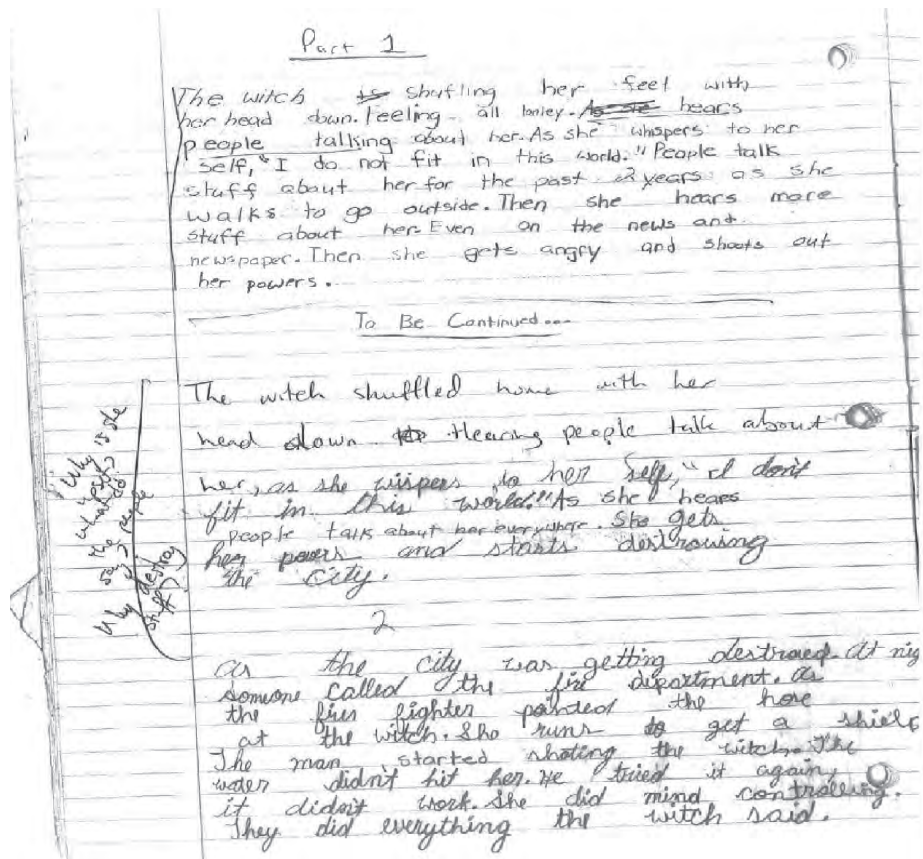 Part 1
The witch is shufling her feet with
her head down. Feeling all lonley. As she hears
people talking about her. As she whispers to her
self, "I do not fit in this world." People talk
stuff about her for the past 2 years as she
walks to go outside. Then she hears more
stuff about her. Even on the news and
newspaper. Then she gets angry and shoots out
her powers.
To Be Continued...
The witch shuffled home with her
head down Hearing people talk about
her, as she wispers to her self, "I don't
fit in this world." As she hears
people talk about her everywhere. She gets
her powers and starts destrowing
the city.
Why is she
what do
say the people
Why destroy
stuff
2
as the city was getting destroed at nig
someone called the fire department. as
the fires fighter pointed the hose
at the witch. She runs to get a shield
The man started shoting the witch. The
water didn't hit her. He tried it again,
it didn't work. She did mind controlling.
They did everything the witch said.